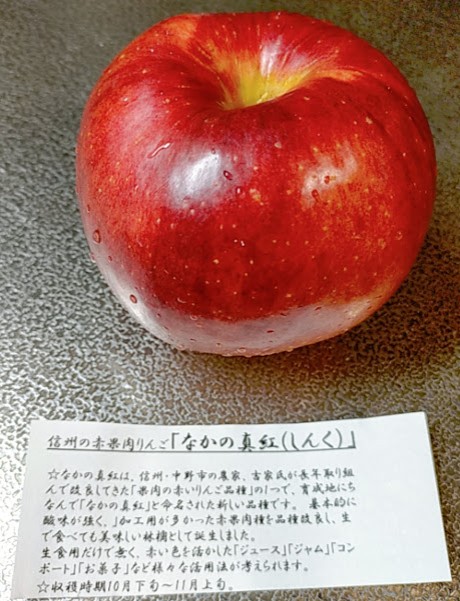 信州の赤果肉りんご「なかの真紅(しんく)」
☆なかの真紅は、信州・中野市の農家、吉家氏が長年取り組
んで改良してきた「果肉の赤いりんご品種」の1つで、育成地にち
なんで「なかの真紅」と命名された新しい品種です。 基本的に
酸味が強く、加工用が多かった赤果肉種を品種改良し、生
で食べても美味しい林檎として誕生しました。
生食用だけで無く、赤い色を活かした「ジュース」「ジャム」「コン
ポート」「お菓子」など様々な活用法が考えられます。
☆収穫時期10月下旬~11月上旬。